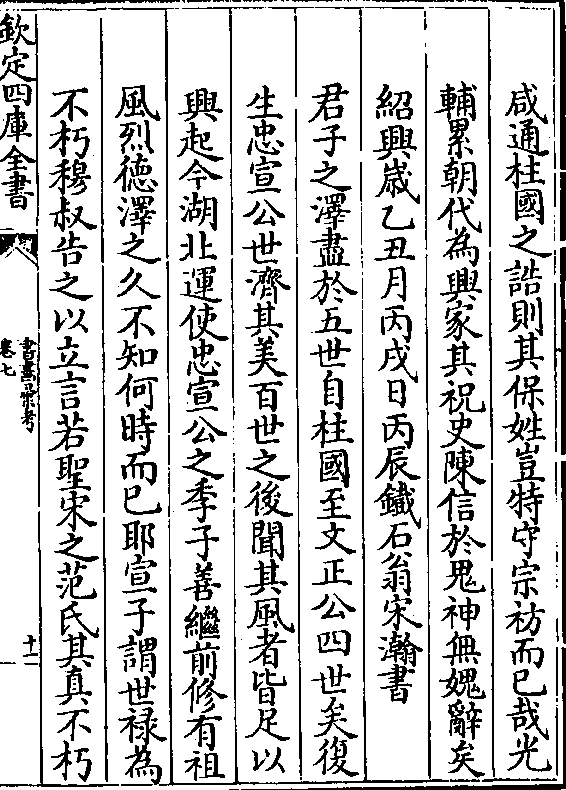 咸通柱國之誥則其保姓豈特守宗祊而已哉光
輔累朝代為興家其祝史陳信於鬼神無媿辭矣
紹興歳乙丑月丙戌日丙辰鐵石翁宋瀚書
君子之澤盡於五世自柱國至文正公四世矣復
生忠宣公世濟其美百世之後聞其風者皆足以
興起今湖北運使忠宣公之季子善繼前修有祖
風烈徳澤之久不知何時而已耶宣子謂世禄為
不朽穆叔告之以立言若聖宋之范氏其真不朽
欽定四庫全書
書畫彚考
卷七
十二